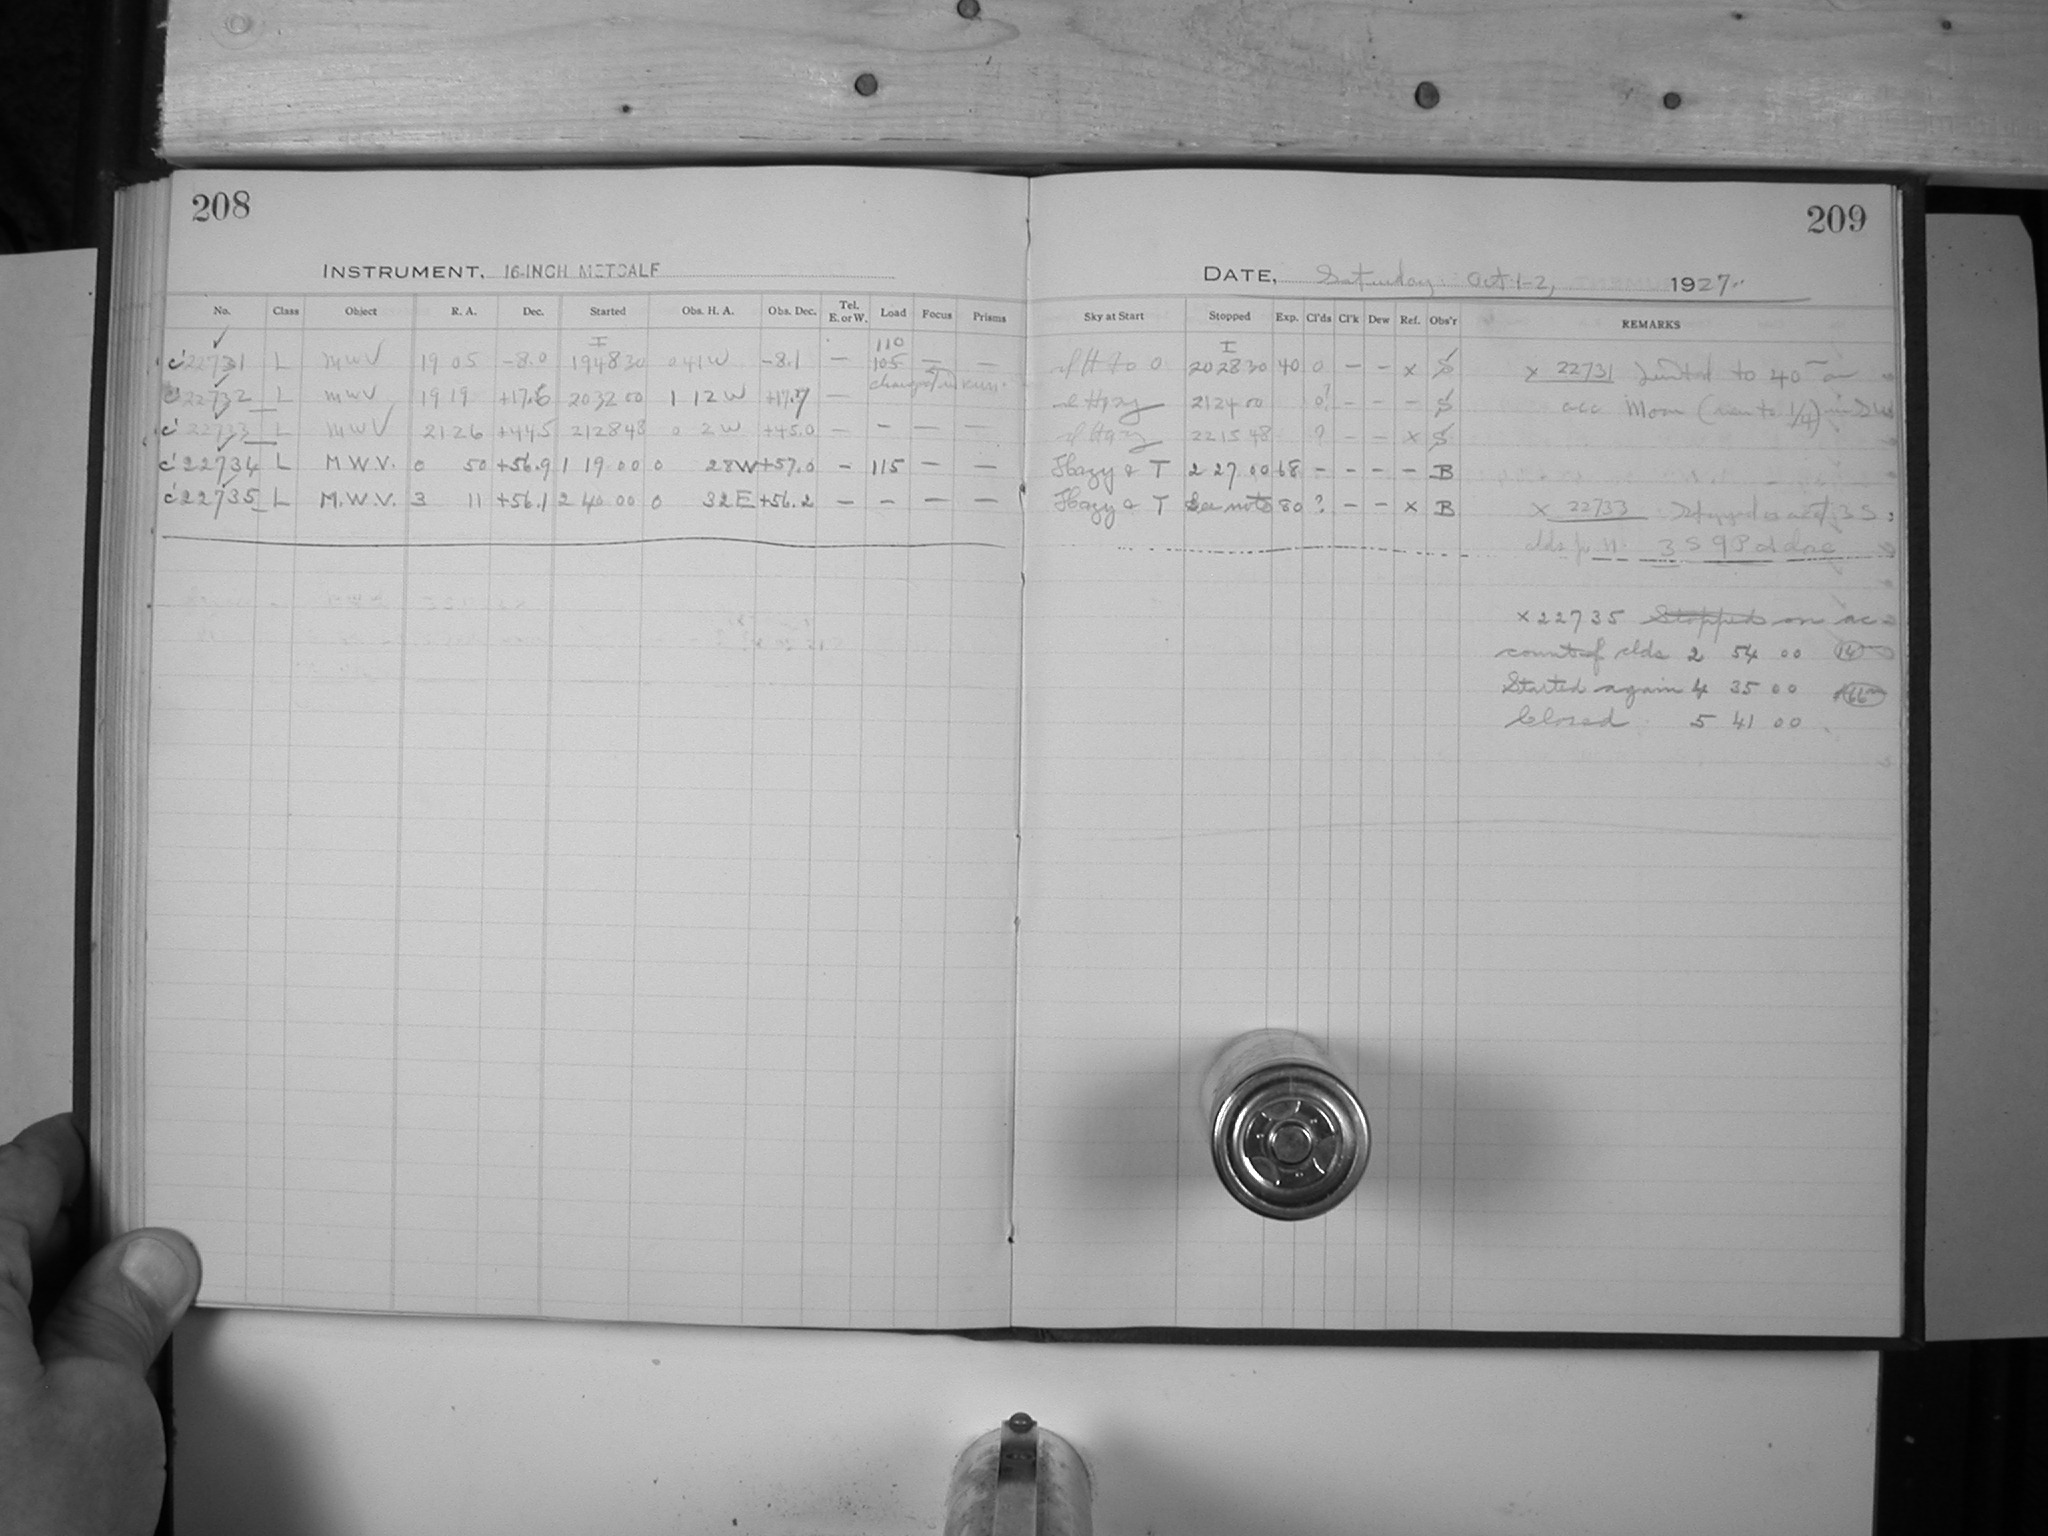 208
209
INSTRUMENT, 16-INCH METCALF
DATE, Saturday Oct 1-2, 1927
No. Class Object R. A. Dec. Started Obs. H. A. Obs. Dec. Tel. E. or W. Load Focus Prisms
Sky at Start Stopped Exp. Cl'ds Cl'k Dew Ref. Obs'r REMARKS
I 110 I
c' 22731 L MWV 19 05 -8.0 19 48 30 0 41 W -8.1 — 105 — — 20 28 30 40 0 — — x S x 22731 Limited to 40 on
22732 L MWV 19 19 +17.6 20 32 00 1 12 W — changed Hazy 21 24 00 0? — — — S acc Moon (near to 1/4) in
c' 22733 L MWV 21 26 +44.5 21 28 48 0 2 W +45.0 — — — — Hazy 22 15 48 ? — — x S
c' 22734 L M.W.V. 0 50 +56.9 1 19 00 0 28 W +57.0 — 115 — — Hazy & T 2 27 00 68 — — — — B
c' 22735 L M.W.V. 3 11 +56.1 2 40 00 0 32 E +56.2 — — — — Hazy & T See note 80 ? — — x B x 22733
x 22735 Stopped on ac-
count of clds 2 54 00 14
Started again 4 35 00 66m
Closed 5 41 00